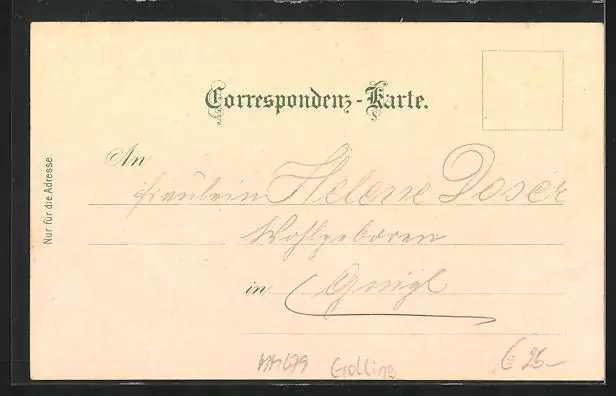 Correspondenz-Karte.
Nur für die Adresse.
An
Fräulein Helene Doser
Wohlgeboren
in Gnigl
Golling
€ 26.-